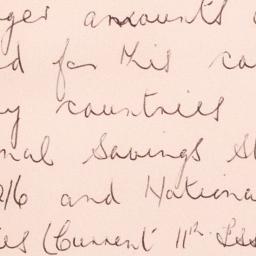 ger amounts
d for this ca
y countries
nal Savings S
2/6 and Nationa
ies (Current 11th Iss